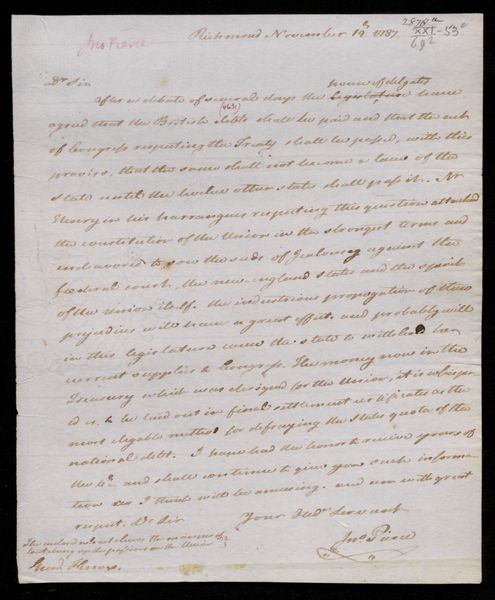 28781
XXI-53
692
Jno Pierce
Richmond November 19th 1787
Dr Sir
house of delgates
After a debate of several days the Legislature have
(4631)
agreed that the British debts shall be paid and that the act
of Congress respecting the Treaty shall be passed, with this
proviso, that the same shall not become a law of the
State until the twelve other states shall pass it. Mr
Henry in his harrangues respecting this question attacked
the constitution of the Union in the strongest terms and
endeavored to sow the seeds of Jealousy against the
fœderal court, the new-england States and the spirit
of the Union itself. the industrious propogation of these
prejudices will have a great effect, and probably will
in this legislature cause the state to withhold her
current supplies to Congress. The money now in the
Treasury which was designed for the Union, it is whisper
ed is to be laid out in final settlement certificates as the
most elegable method for defraying the States quota of the
national debt. I have had the honor to receive yours of
the 4th and shall continue to give you such informa
tion as I think will be amusing. and am with great
respect, Dr Sir
Your Obdt Servant
Jno Pierce
The enclosed
the Union
Genl Knox.